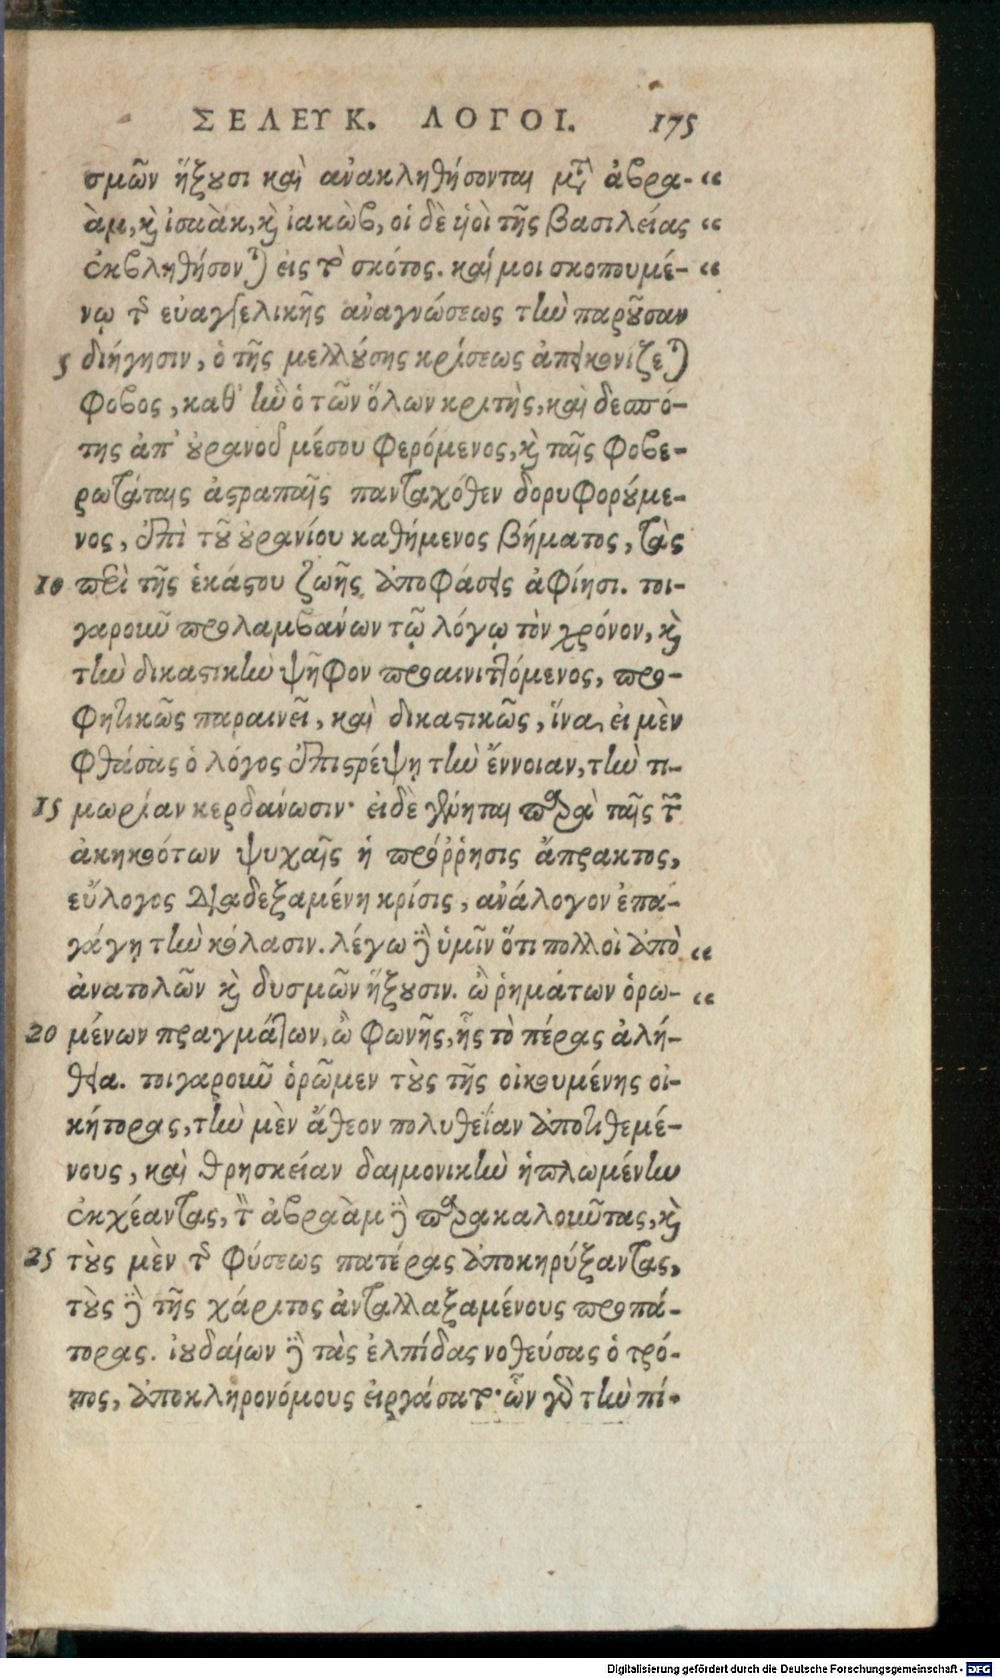 ΣΕΛΕΥΚ. ΛΟΓΟΙ. 175
σμῶν ἥξουσι καὶ ἀνακληθήσονται μετὰ ἀβρα- “
ὰμ, καὶ ἰσαὰκ, καὶ ἰακὼβ, οἱ δὲ υἱοὶ τῆς βασιλείας “
ἐκβληθήσονται εἰς τὸ σκότος. καί μοι σκοπουμέ- “
νῳ τῆς εὐαγγελικῆς ἀναγνώσεως τὴν παροῦσαν
5 διήγησιν, ὁ τῆς μελλούσης κρίσεως ἀπεικονίζεται
φόβος, καθ' ἣν ὁ τῶν ὅλων κριτὴς, καὶ δεσπό-
της ἀπ' οὐρανοῦ μέσου φερόμενος, καὶ ταῖς φοβε-
ρωτάταις ἀστραπαῖς πανταχόθεν δορυφορούμε-
νος, ἐπὶ τοῦ οὐρανίου καθήμενος βήματος, τὰς
10 περὶ τῆς ἑκάστου ζωῆς ἀποφάσεις ἀφίησι. τοι-
γαροιοῦ προλαμβανων τῷ λόγῳ τὸν χρόνον, καὶ
τὴν δικαστικὴν ψῆφον προαινιττόμενος, προ-
φητικῶς παραινεῖ, καὶ δικαστικῶς, ἵνα, εἰ μὲν
φθάσας ὁ λόγος ἐπιστρέψῃ τὴν ἔννοιαν, τὴν τι-
15 μωρίαν κερδάνωσιν· εἰ δὲ γένηται παρὰ ταῖς τῶν
ἀκηκοότων ψυχαῖς ἡ πρόῤῥησις ἄπρακτος,
εὔλογος διαδεξαμένη κρίσις, ἀνάλογον ἐπα-
γάγῃ τὴν κόλασιν. λέγω δὲ ὑμῖν ὅτι πολλοὶ ἀπὸ “
ἀνατολῶν καὶ δυσμῶν ἥξουσιν. ὢ ῥημάτων ὁρω- “
20 μένων πραγμάτων, ὢ φωνῆς, ἧς τὸ πέρας ἀλή-
θεια. τοιγαροῦν ὁρῶμεν τοὺς τῆς οἰκουμένης οἰ-
κήτορας, τὴν μὲν ἄθεον πολυθεΐαν ἀποτιθεμέ-
νους, καὶ θρησκείαν δαιμονικὴν ἡπλωμένην
ἐκχέαντας, τὸν ἀβραὰμ δὲ παρακαλοῦντας, καὶ
25 τοὺς μὲν τῆς φύσεως πατέρας ἀποκηρύξαντας,
τοὺς δὲ τῆς χάριτος ἀνταλλαξαμένους προπά-
τορας. ἰουδαίων δὲ τὰς ἐλπίδας νοθεύσας ὁ τρό-
πος, ἀποκληρονόμους εἰργάσατο· ὧν γὰρ τὴν πί-
Digitalisierung gefördert durch die Deutsche Forschungsgemeinschaft - DFG